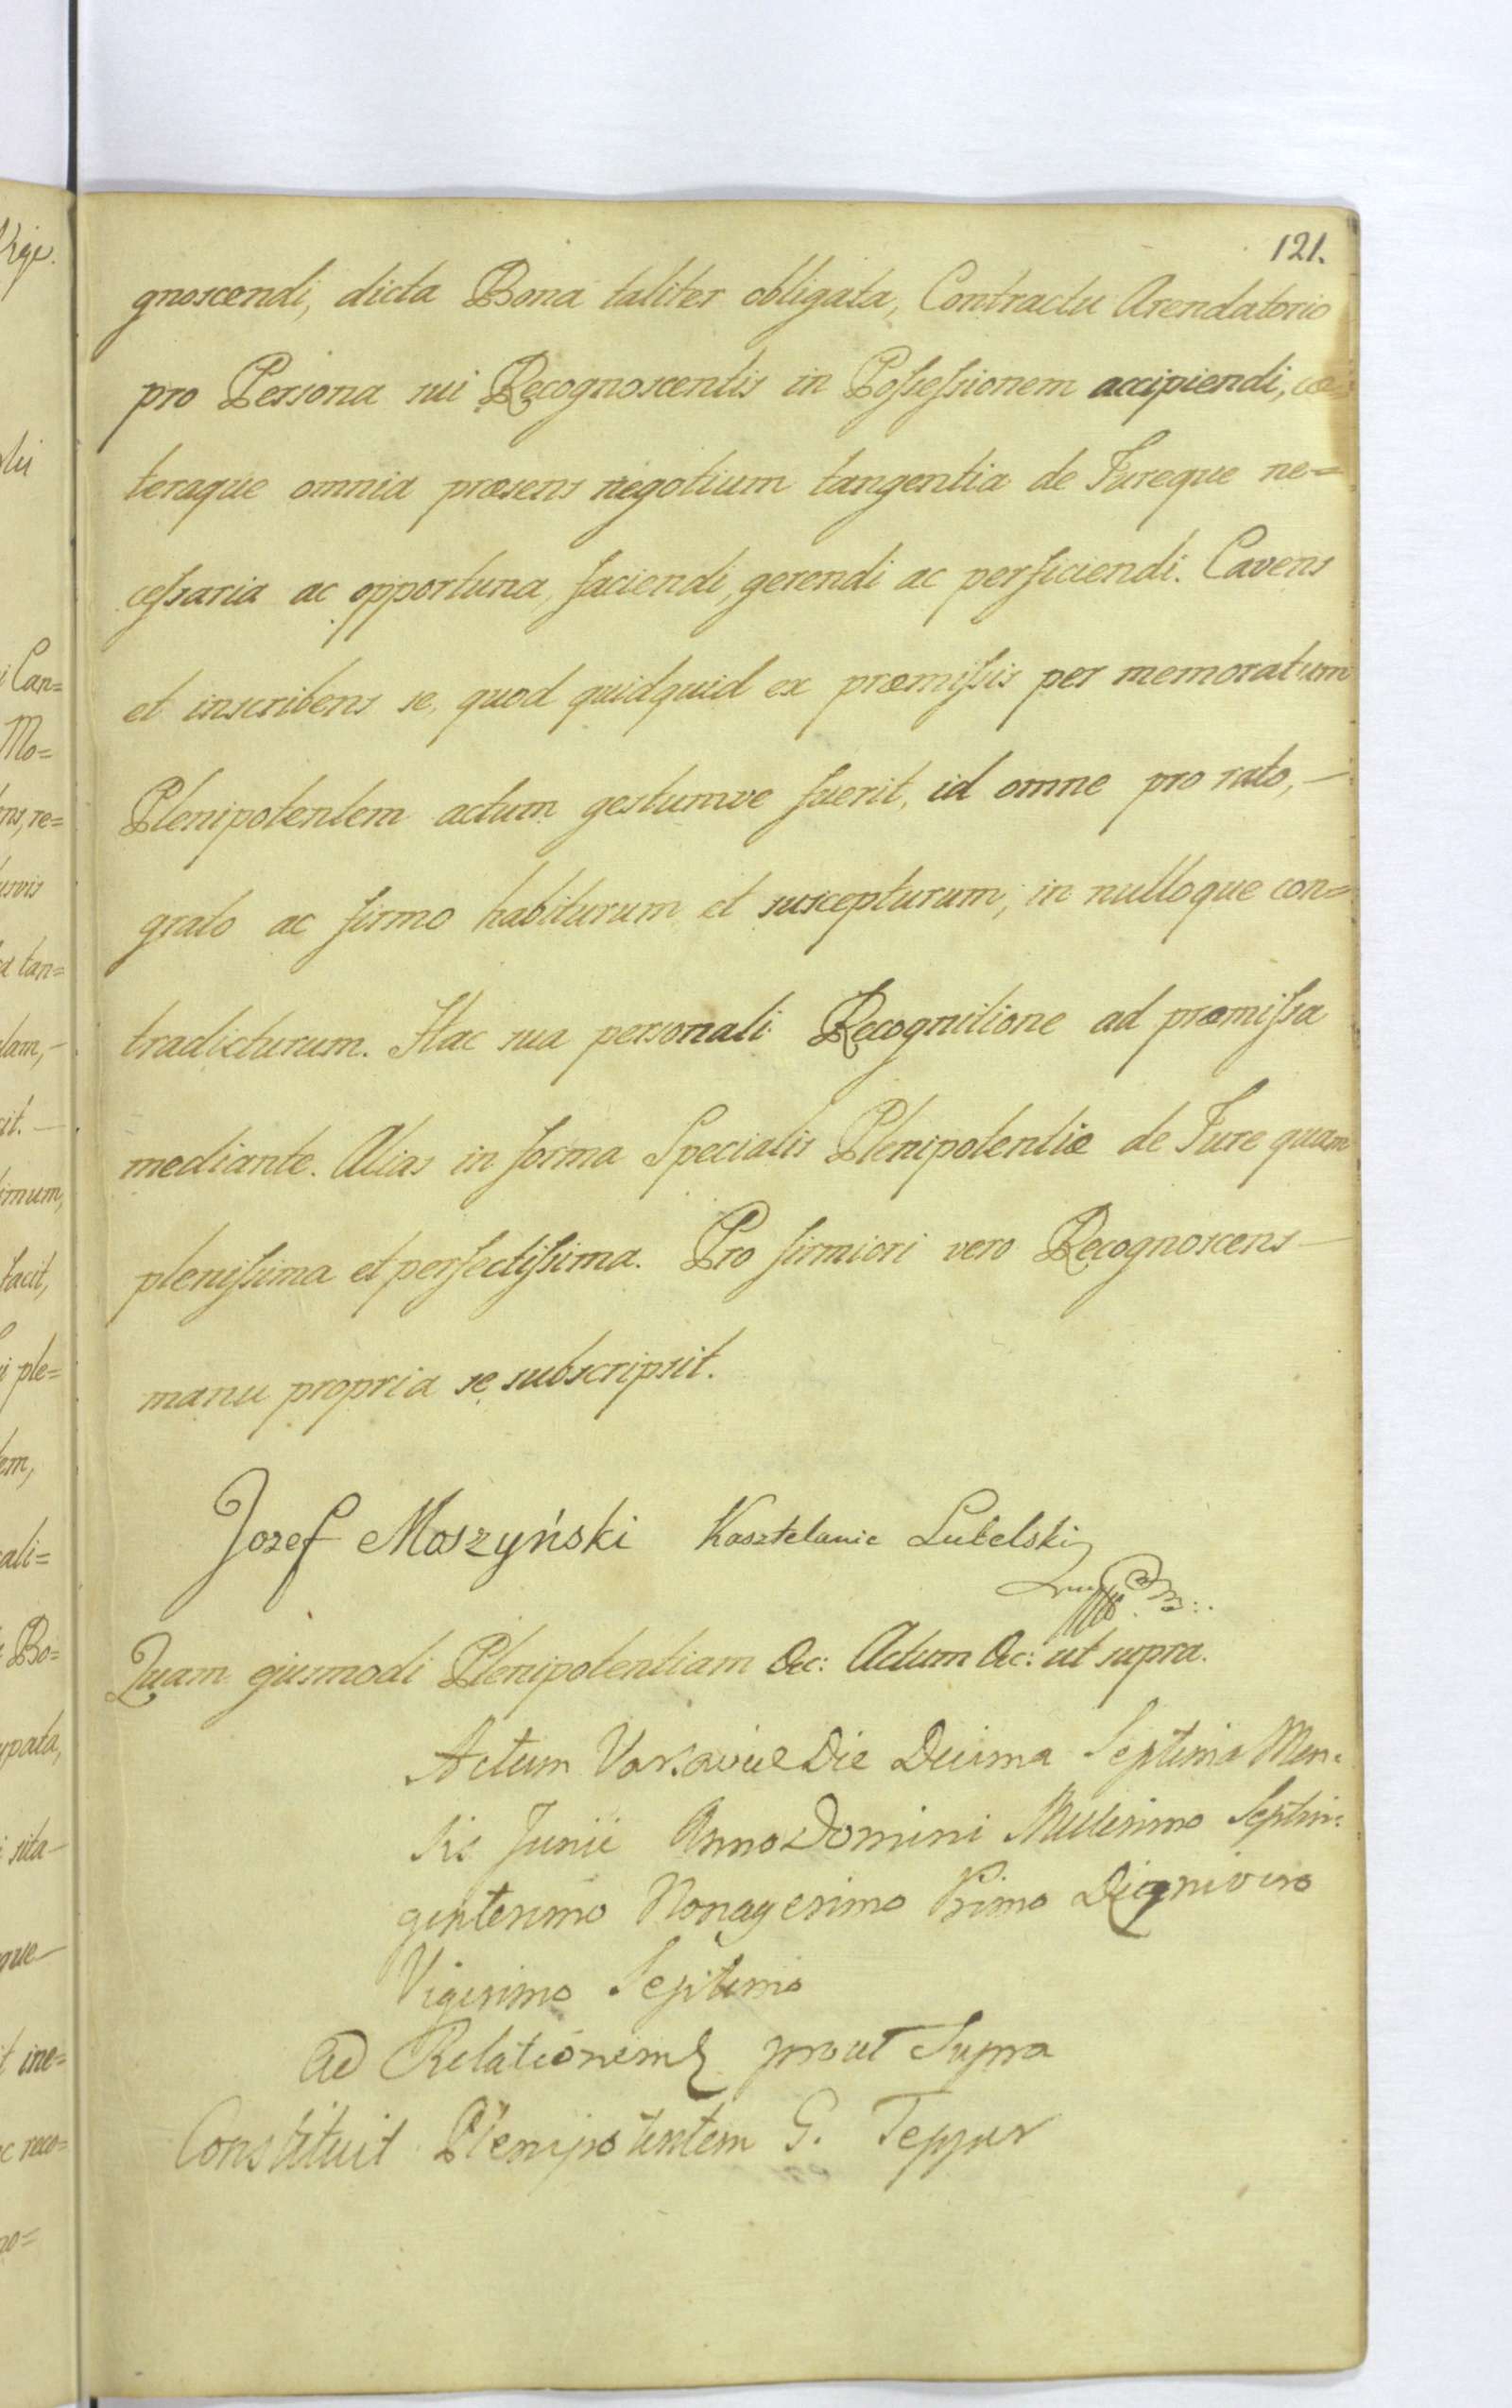 121.
gnoscendi, dicta Bona taliter obligata, Contractu Arendatorio
pro Persona sui Recognoscentis in Poſseſsionem accipiendi, cæ=
teraque omnia præsens negotium tangentia de Jureque ne=
ceſsaria ac opportuna, faciendi, gerendi ac perficiendi. Cavens
et inscribens se, quod quidquid ex præmiſsis per memoratum
Plenipotentem actum gestumve fuerit, id omne pro rato, —
grato ac firmo habiturum et suscepturum, in nulloque con=
tradicturum. Hac sua personali Recognitione ad præmiſsa
mediante. Alias in forma Specialis Plenipotentiæ de Jure quam
pleniſsima et perfectiſsima. Pro firmiori vero Recognoscens —
manu propria se subscripsit.
Jozef Moszyński Kasztelanic Lubelski
Quam ejusmodi Plenipotentiam &c: Actum &c: ut supra.
Actum Varsaviæ Die Decima Septima Men=
sis Junii Anno Domini Millesimo Septin=
gentesimo Nonagesimo Primo Regni vero
Vigesimo Septimo
Ad Relationem prout Supra
Constituit Plenipotentem G. Tepper
Vige.
lii
i Can=
Mo=
ns, re=
usvis
a tan=
lam, -
it. —
imum,
facit,
i ple=
em,
ali=
Bo=
ypata,
i sita
que
t ine=
c reco=
no=